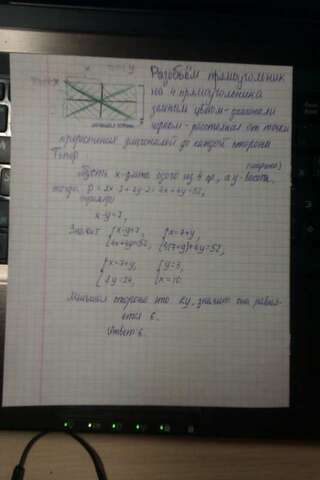 Разобьём прямоугольник
на 4 прямоугольника
зелёным цветом - диагонали
чёрным - расстояния от точки
пересечения диагоналей до каждой стороны
Пусть x - длина одного из 4 пр, а y - высота.
тогда P = 2x·2+2y·2 = 4x+4y=52,
x-y=7,
Значит { x-y=7, { x=7+y,
4x+4y=52, 4(7+y)+4y=52,
{ x=7+y, { y=3,
8y=24, x=10
Меньшая сторона это 2y, значит она равня-
ется 6.
Ответ: 6.